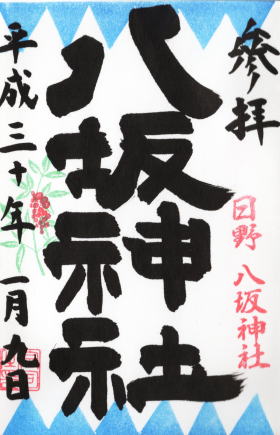 参拝
日野 八坂神社
八坂神社
平成三十年 一月九日